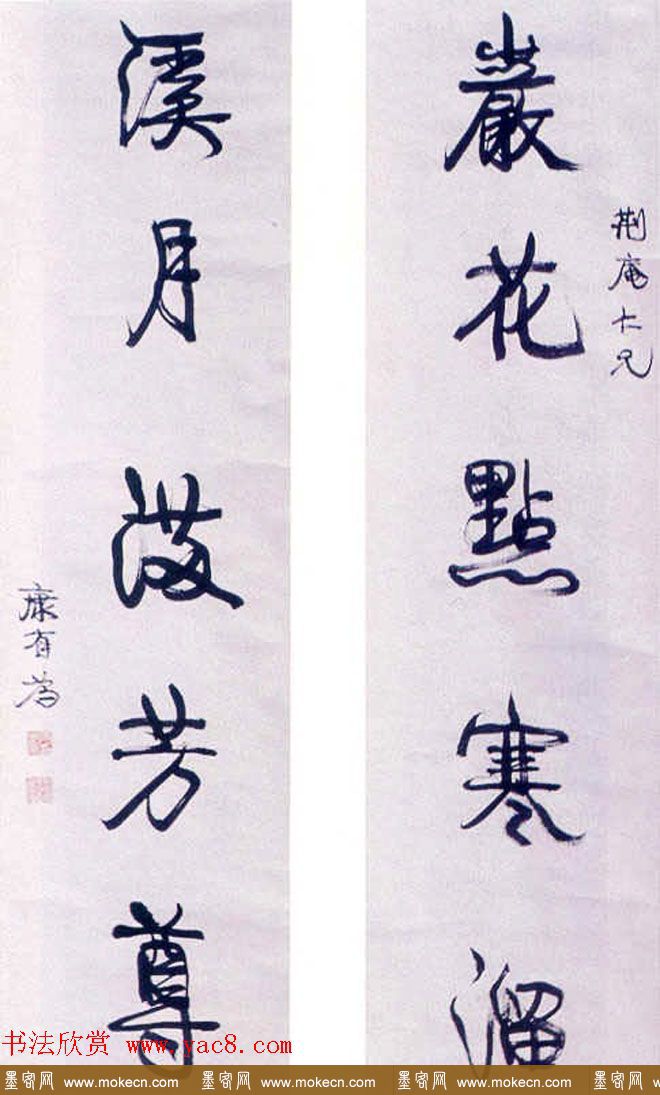 荆庵仁兄
巖花點寒溜
溪月芳尊
康有為
书法欣赏 www.yac8.com
墨客网 www.mokecn.com 墨客网 www.mokecn.com 墨客网 www.mokecn.com